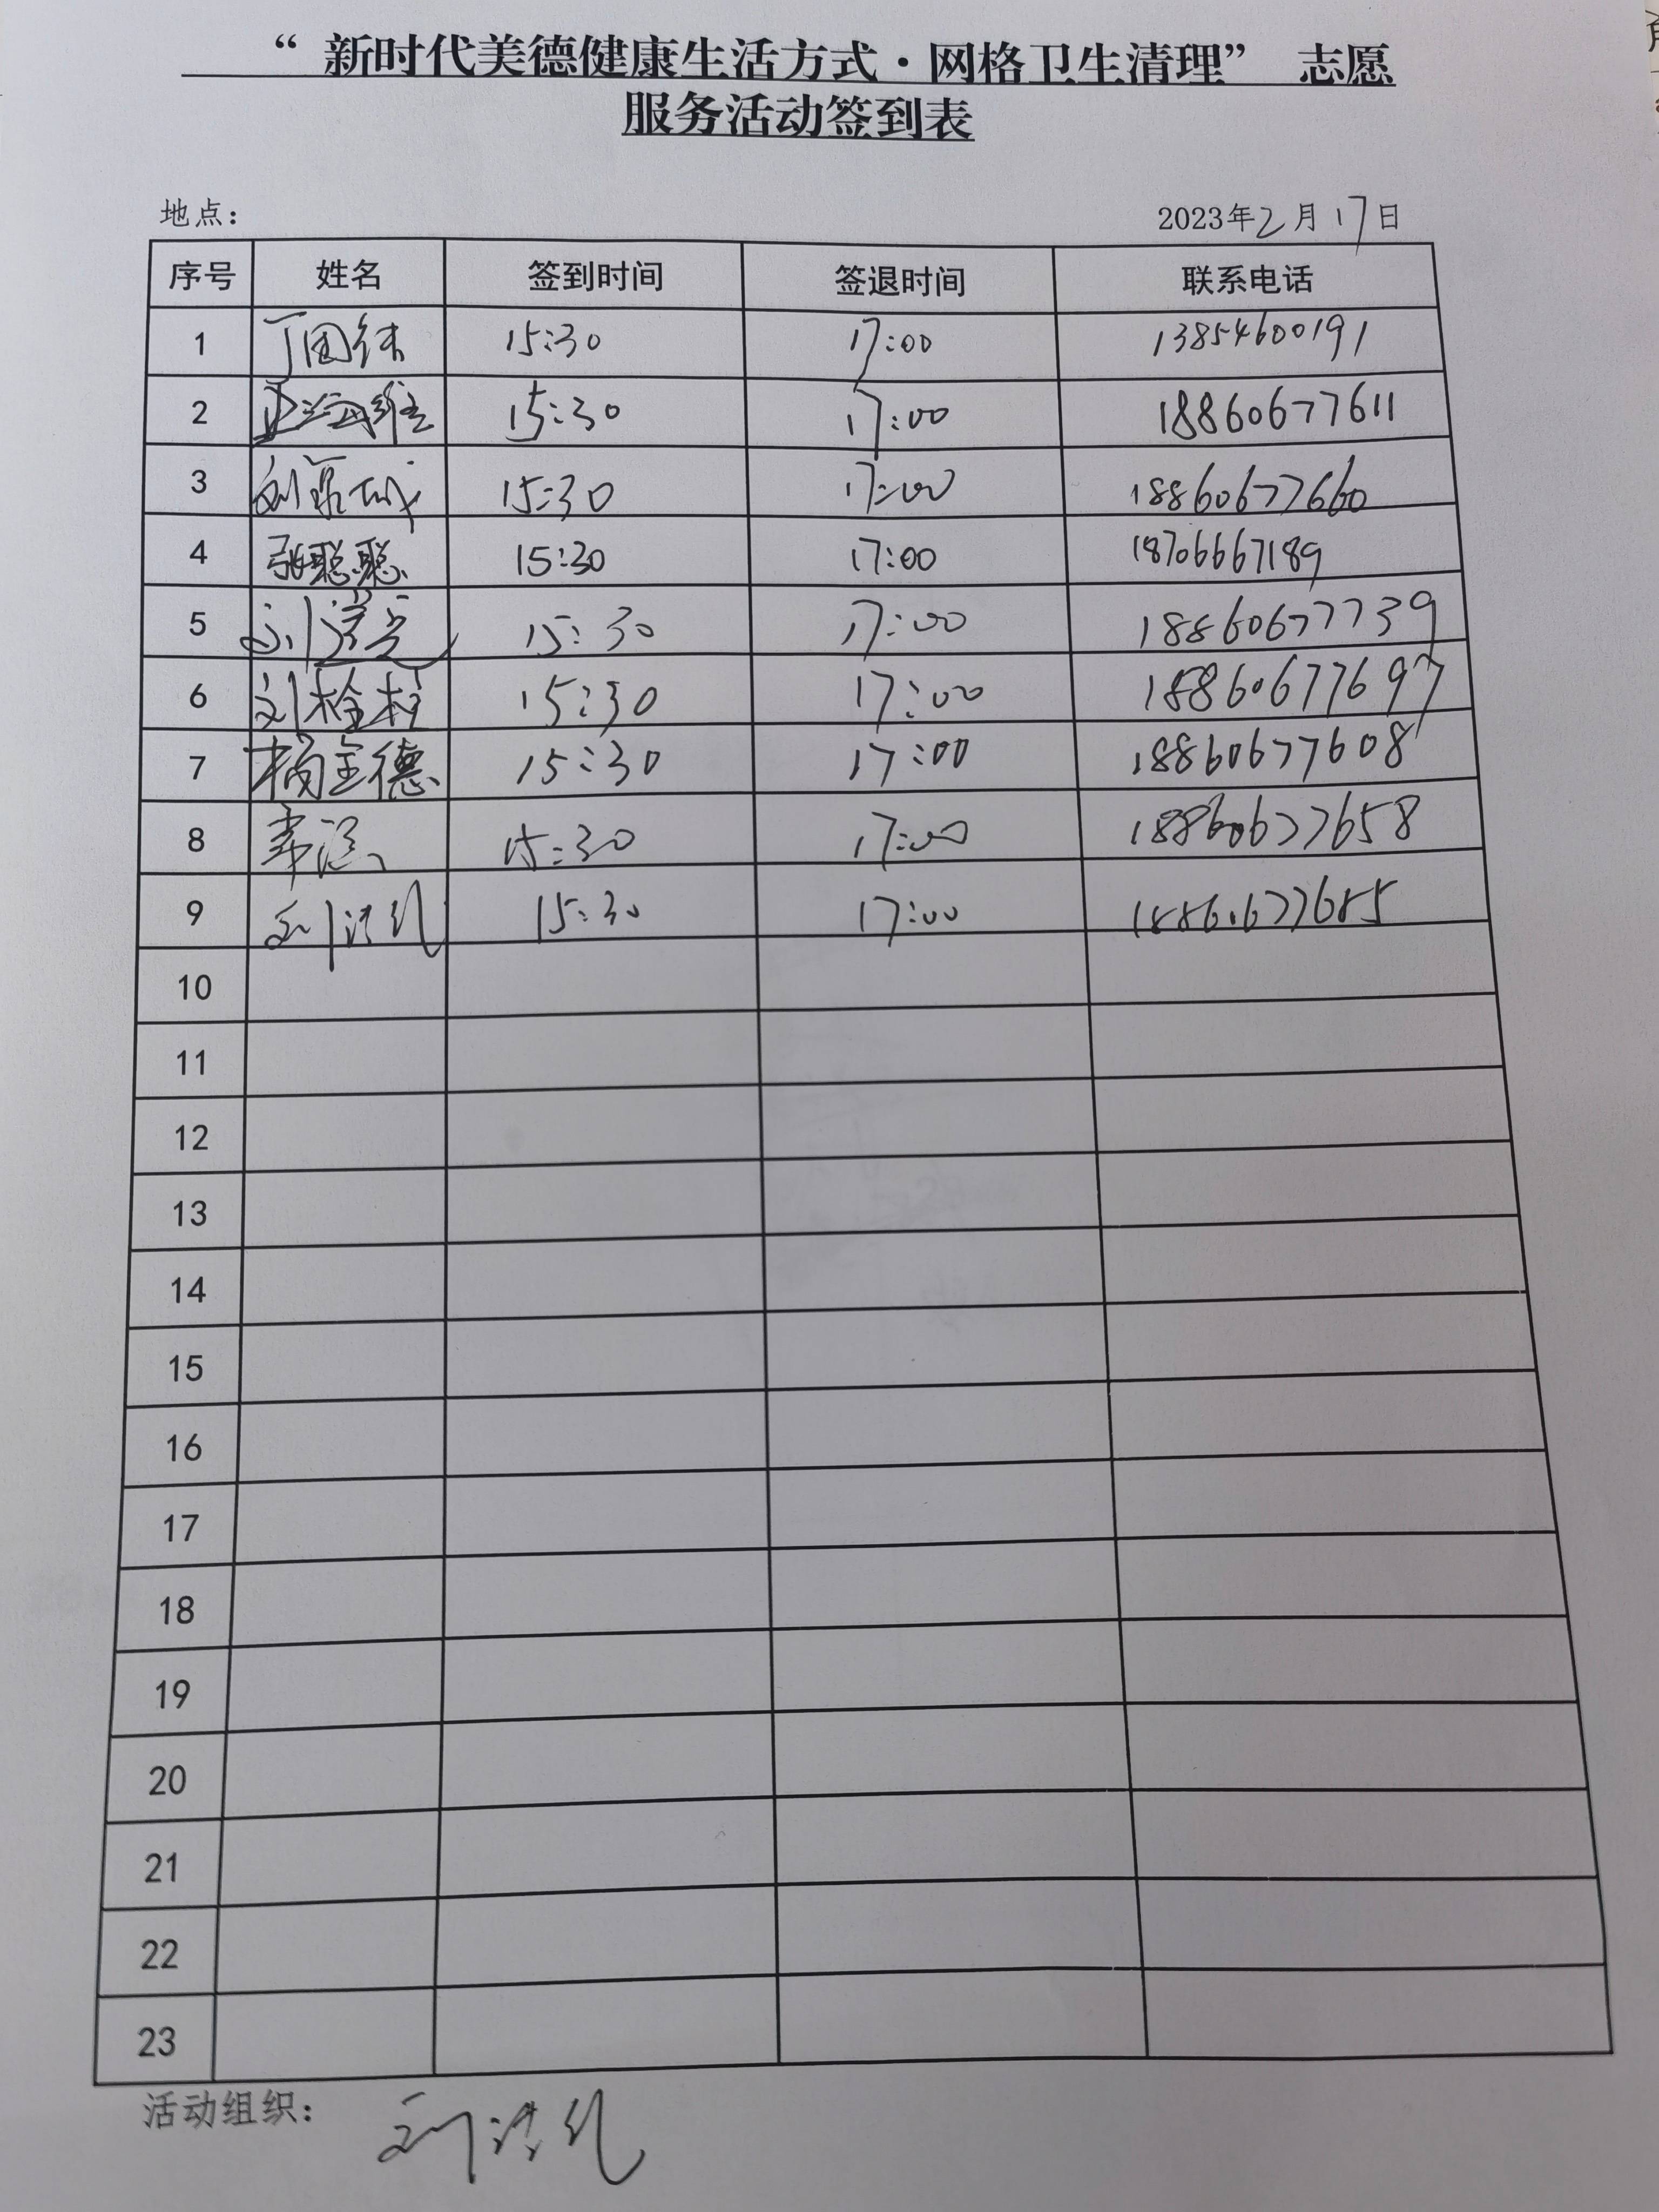 “ 新时代美德健康生活方式·网格卫生清理” 志愿
服务活动签到表
地点： 2023年2月17日
序号 姓名 签到时间 签退时间 联系电话
1 15:30 17:00 13854600191
2 15:30 17:00 18860677611
3 15:30 17:00 18860677660
4 张聪聪 15:30 17:00 18706667189
5 15:30 17:00 18860677739
6 刘栓柱 15:30 17:00 18860677697
7 杨全德 15:30 17:00 18860677608
8 15:30 17:00 18860677658
9 15:30 17:00 18860677685
10
11
12
13
14
15
16
17
18
19
20
21
22
23
活动组织：